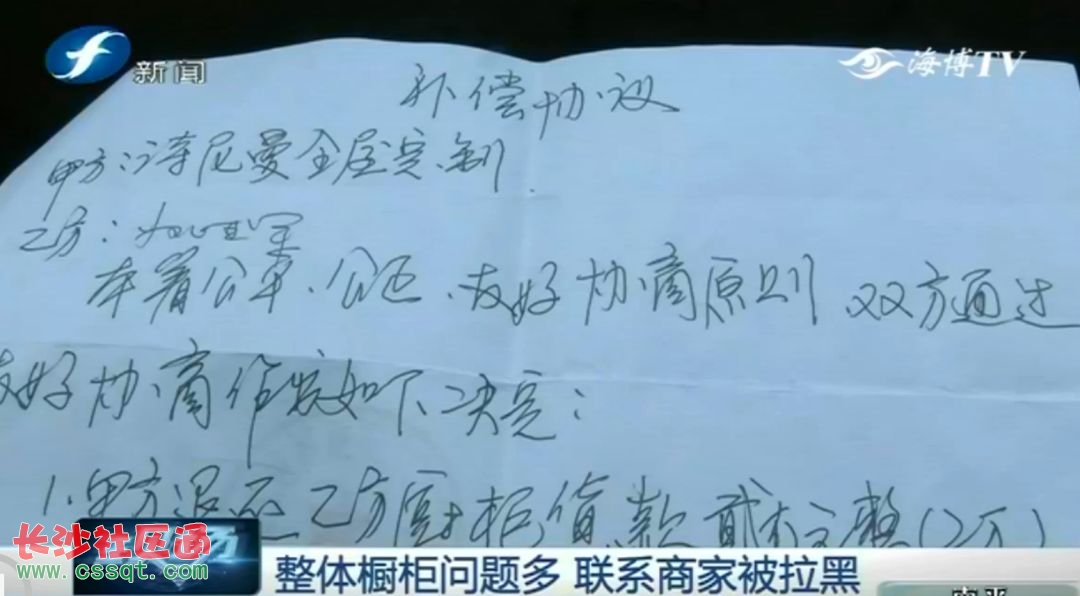 新闻
海博TV
补偿协议
甲方：诗尼曼全屋定制
乙方：
本着公平、公正、友好协商原则 双方通过
友好协商作出如下决定：
1.甲方退还乙方橱柜货款贰万元整(2万)
长沙社区通
www.cssqt.com
整体橱柜问题多 联系商家被拉黑